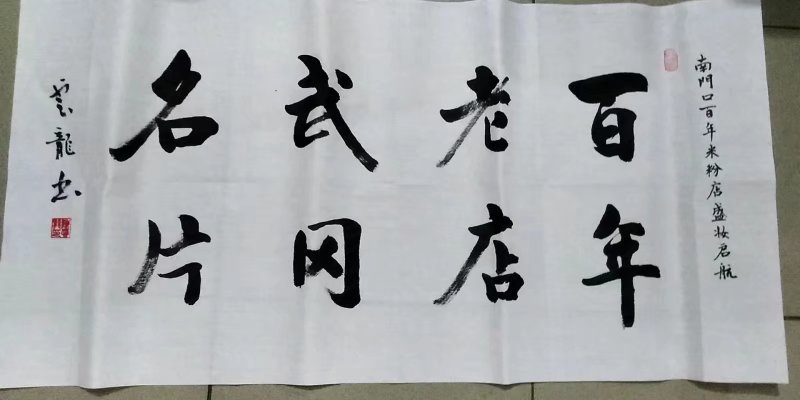 南門口百年米粉店盛妆启航
百年
老店
武冈
名片
雲龍书